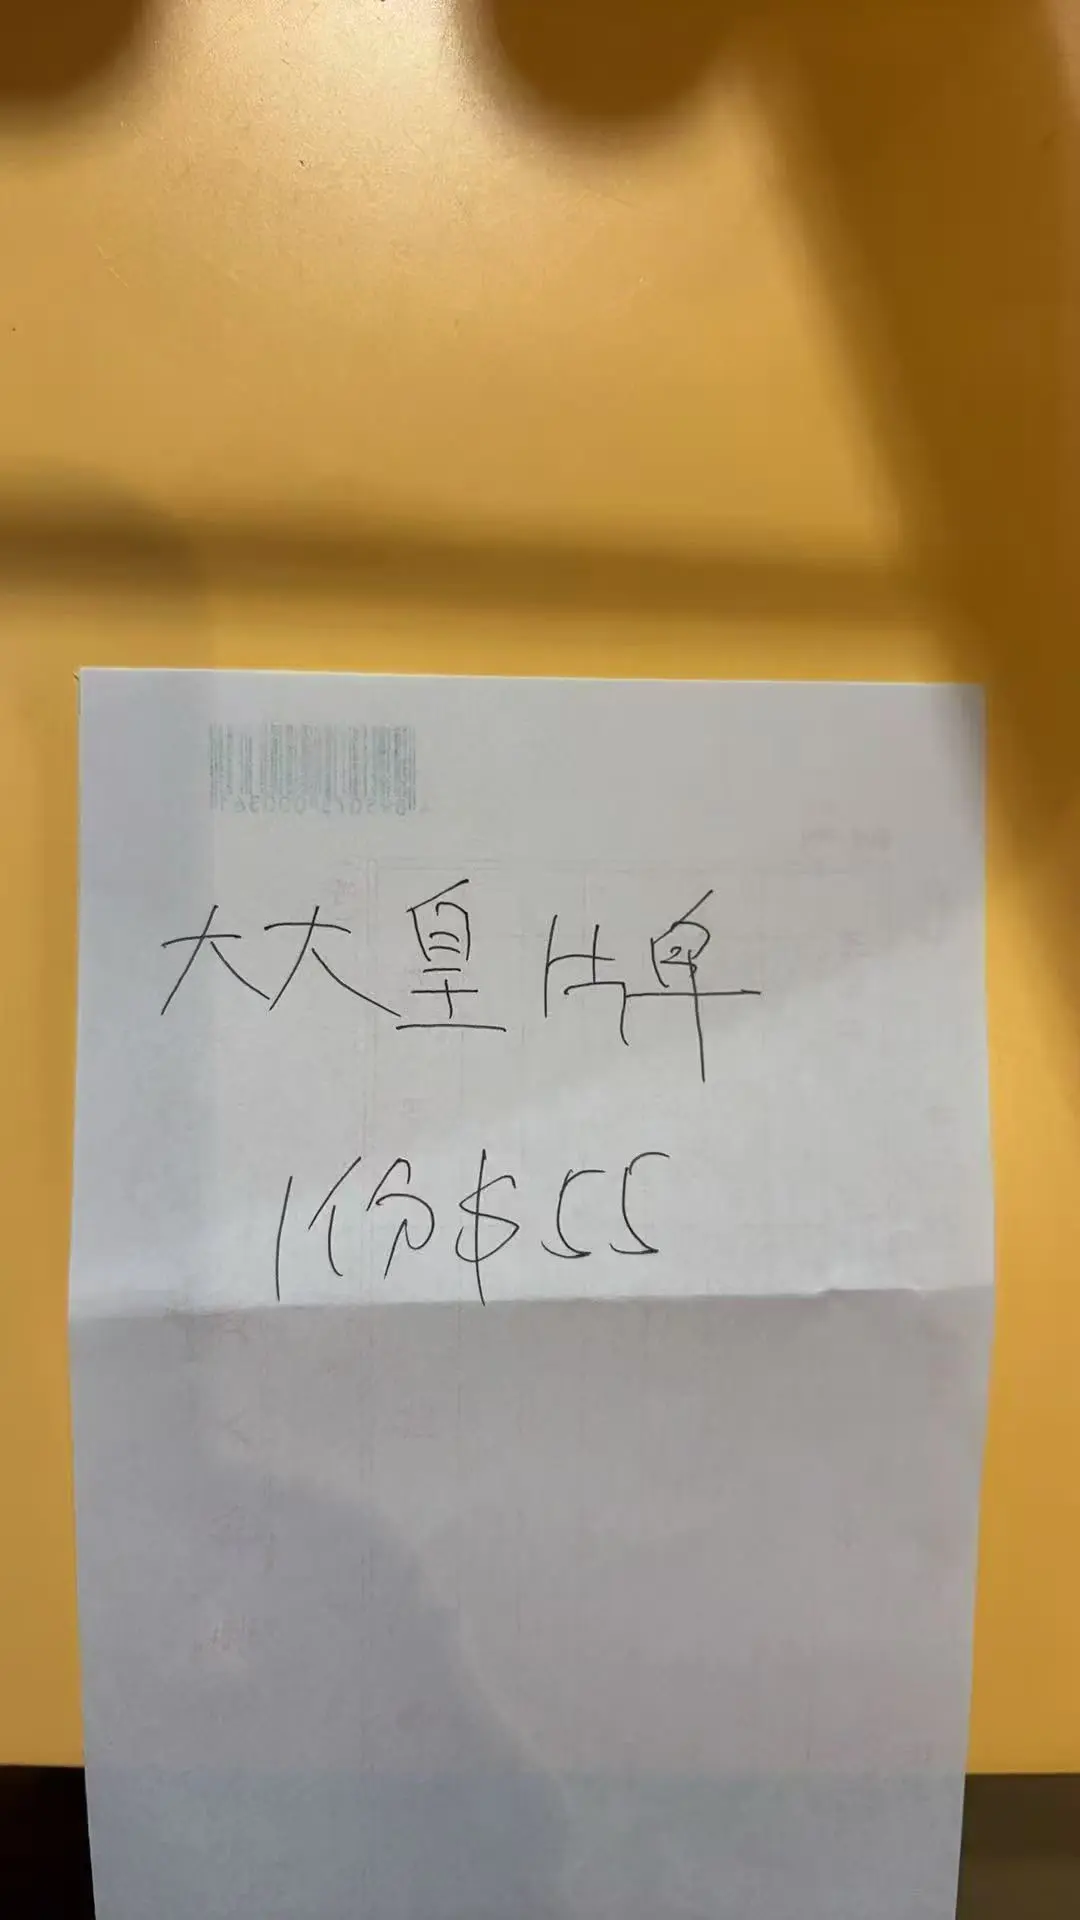 大大皇牌
1份$55